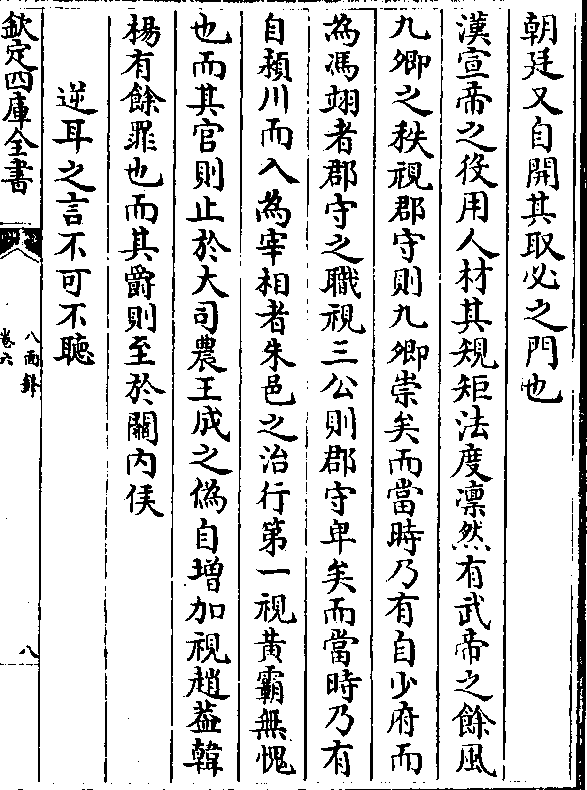 朝廷又自開其取必之門也
漢宣帝之役用人材其規矩法度凛然有武帝之餘風
九卿之秩視郡守則九卿崇矣而當時乃有自少府而
為馮翊者郡守之職視三公則郡守卑矣而當時乃有
自潁川而入為宰相者朱邑之治行第一視黄霸無愧
也而其官則止於大司農王成之偽自增加視趙葢韓
楊有餘罪也而其爵則至於關内侯
逆耳之言不可不聽
欽定四庫全書
八面鋒
卷六
八